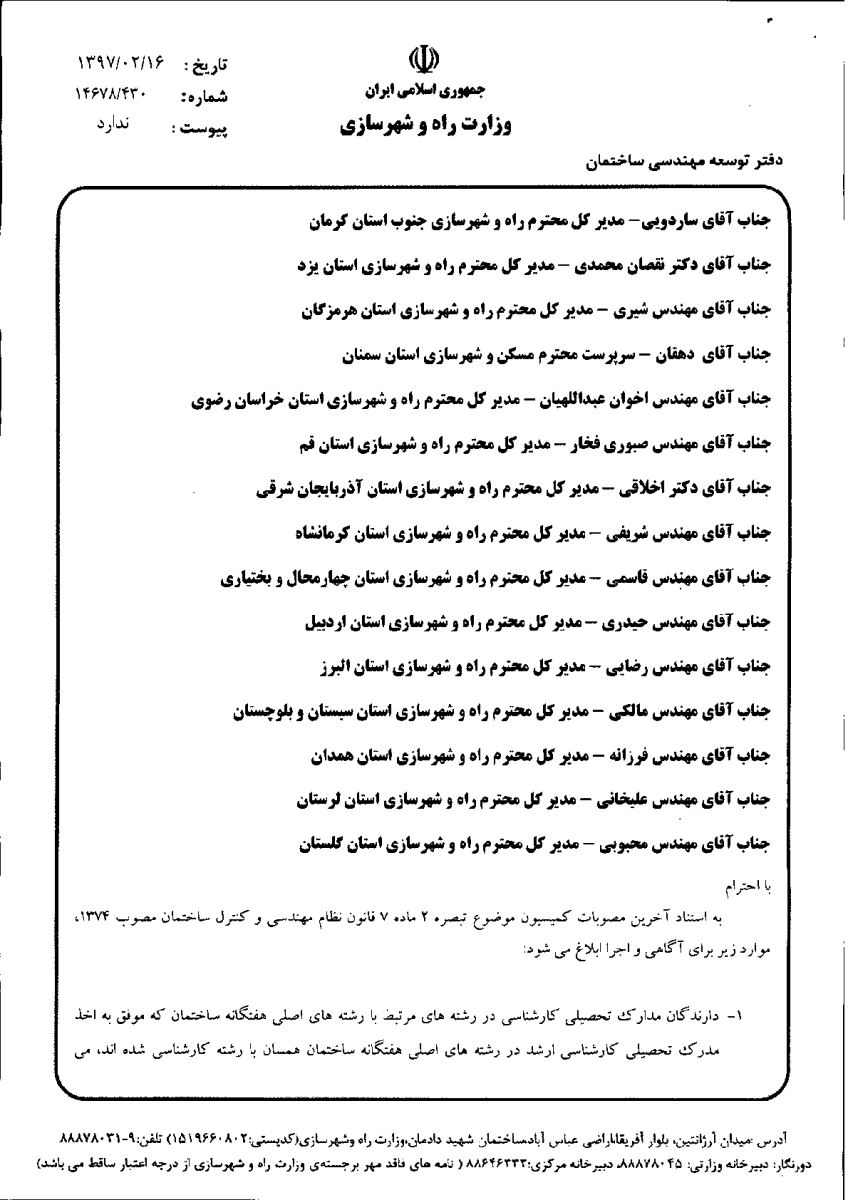 جمهوری اسلامی ایران
وزارت راه و شهرسازی
تاریخ : ۱۳۹۷/۰۲/۱۶
شماره: ۱۴۶۷۸/۴۳۰
پیوست : ندارد
دفتر توسعه مهندسی ساختمان
جناب آقای ساردویی– مدیر کل محترم راه و شهرسازی جنوب استان کرمان
جناب آقای دکتر نقصان محمدی – مدیر کل محترم راه و شهرسازی استان یزد
جناب آقای مهندس شیری – مدیر کل محترم راه و شهرسازی استان هرمزگان
جناب آقای دهقان – سرپرست محترم مسکن و شهرسازی استان سمنان
جناب آقای مهندس اخوان عبداللهیان – مدیر کل محترم راه و شهرسازی استان خراسان رضوی
جناب آقای مهندس صبوری فخار – مدیر کل محترم راه و شهرسازی استان قم
جناب آقای دکتر اخلاقی – مدیر کل محترم راه و شهرسازی استان آذربایجان شرقی
جناب آقای مهندس شریفی – مدیر کل محترم راه و شهرسازی استان کرمانشاه
جناب آقای مهندس قاسمی – مدیر کل محترم راه و شهرسازی استان چهارمحال و بختیاری
جناب آقای مهندس حیدری – مدیر کل محترم راه و شهرسازی استان اردبیل
جناب آقای مهندس رضایی – مدیر کل محترم راه و شهرسازی استان البرز
جناب آقای مهندس مالکی – مدیر کل محترم راه و شهرسازی استان سیستان و بلوچستان
جناب آقای مهندس فرزانه – مدیر کل محترم راه و شهرسازی استان همدان
جناب آقای مهندس علیخانی – مدیر کل محترم راه و شهرسازی استان لرستان
جناب آقای مهندس محبوبی – مدیر کل محترم راه و شهرسازی استان گلستان
با احترام
به استناد آخرین مصوبات کمیسیون موضوع تبصره ۲ ماده ۷ قانون نظام مهندسی و کنترل ساختمان مصوب ۱۳۷۴،
موارد زیر برای آگاهی و اجرا ابلاغ می شود:
۱– دارندگان مدارک تحصیلی کارشناسی در رشته های مرتبط با رشته های اصلی هفتگانه ساختمان که موفق به اخذ
مدرک تحصیلی کارشناسی ارشد در رشته های اصلی هفتگانه ساختمان همسان با رشته کارشناسی شده اند، می
آدرس :میدان آرژانتین، بلوار آفریقا،اراضی عباس آباد،ساختمان شهید دادمان،وزارت راه وشهرسازی(کدپستی:۱۵۱۹۶۶۰۸۰۲) تلفن:۹-۸۸۸۷۸۰۳۱
دورنگار: دبیرخانه وزارتی: ۸۸۸۷۸۰۴۵، دبیرخانه مرکزی:۸۸۶۴۶۳۳۳ ( نامه های فاقد مهر برجسته‌ی وزارت راه و شهرسازی از درجه اعتبار ساقط می باشد)